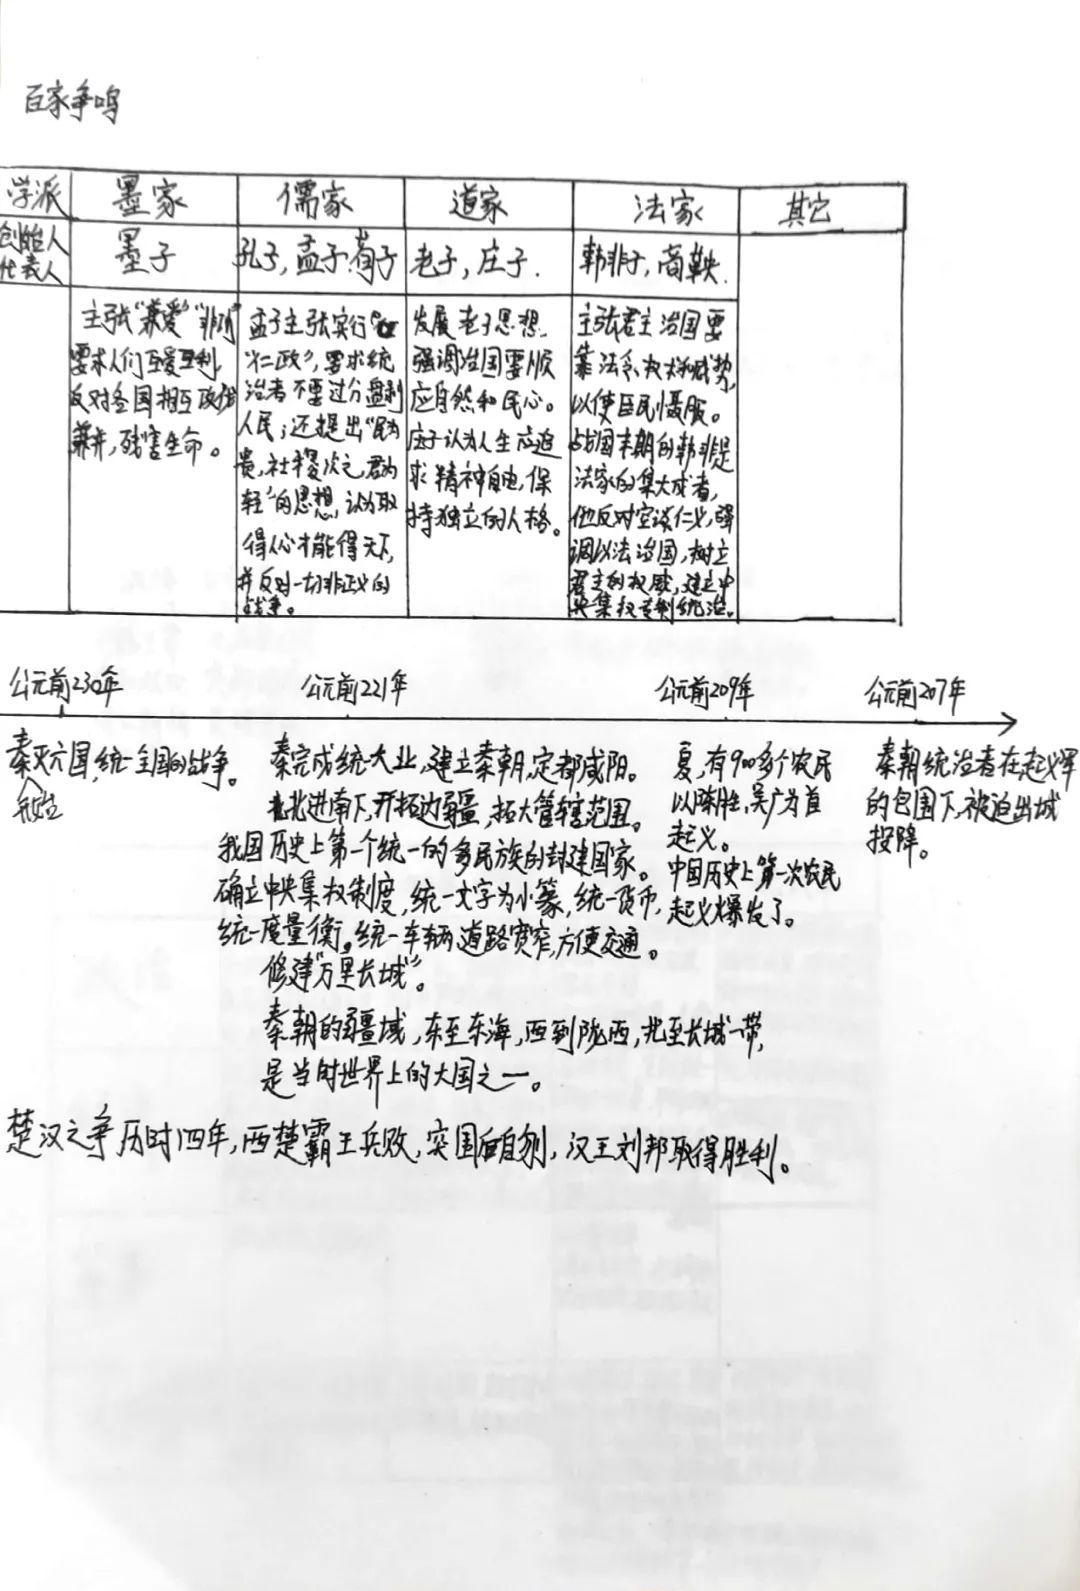 百家争鸣
学派 墨家 儒家 道家 法家 其它
创始人
代表人
墨子
孔子,孟子.荀子
老子,庄子.
韩非子,商鞅.
主张"兼爱""非攻"
要求人们互爱互利,
反对各国相互攻伐
兼并,残害生命。
孟子主张实行
"仁政",要求统
治者不要过分盘剥
人民;还提出"民为
贵,社稷次之,君为
轻"的思想,认为取
得人心才能得天下,
并反对一切非正义的
战争。
发展老子思想,
强调治国要顺
应自然和民心。
庄子认为人生应追
求精神自由,保
持独立的人格。
主张君主治国要
靠法令、权术和威势,
以使臣民慑服。
战国末期的韩非是
法家的集大成者,
他反对空谈仁义,强
调以法治国,树立
君主的权威,建立中
央集权专制统治。
公元前230年 公元前221年 公元前209年 公元前207年
秦灭六国,统一全国的战争。
秦完成统一大业,建立秦朝,定都咸阳。
北进南下,开拓边疆,拓大管辖范围。
我国历史上第一个统一的多民族的封建国家。
确立中央集权制度,统一文字为小篆,统一货币,
统一度量衡。统一车辆,道路宽窄,方便交通。
修建"万里长城"。
秦朝的疆域,东至东海,西到陇西,北至长城一带,
是当时世界上的大国之一。
夏,有900多个农民
以陈胜,吴广为首
起义。
中国历史上第一次农民
起义爆发了。
秦朝统治者在起义军
的包围下,被迫出城
投降。
楚汉之争历时四年,西楚霸王兵败,突围后自刎,汉王刘邦取得胜利。